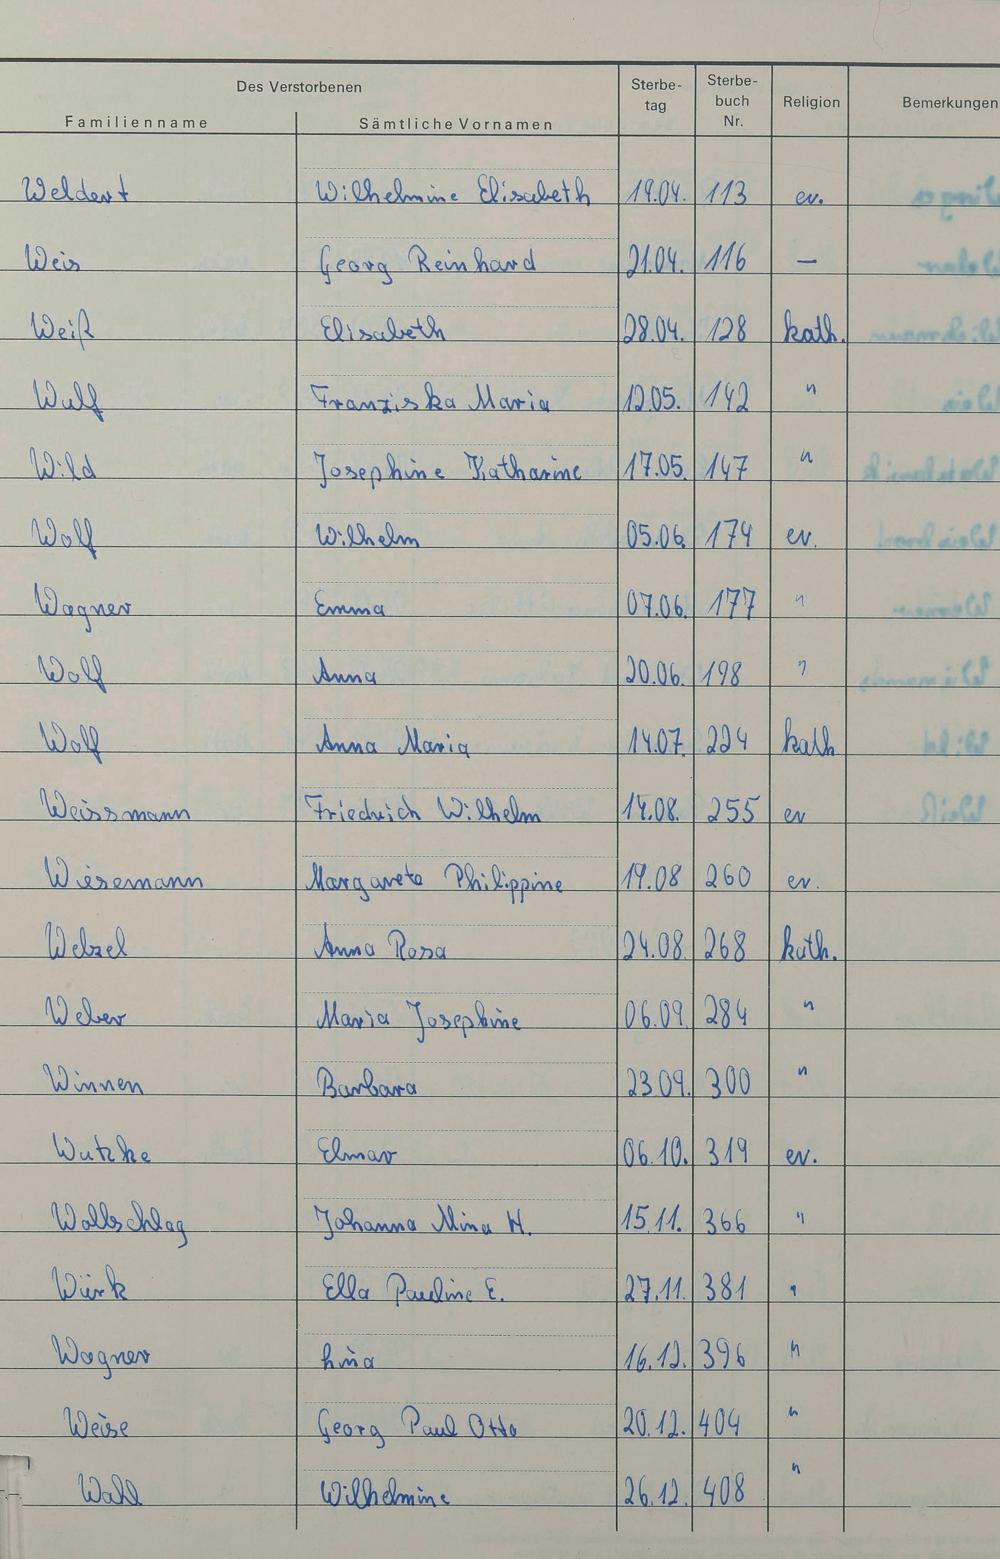 Des Verstorbenen
Familienname Sämtliche Vornamen Sterbe-tag Sterbe-buch Nr. Religion Bemerkungen
Weldert Wilhelmine Elisabeth 19.04. 113 ev.
Weis Georg Reinhard 21.04. 116 —
Weiß Elisabeth 28.04. 128 kath.
Wulf Franziska Maria 12.05. 142 "
Wild Josephine Katharine 17.05. 147 "
Wolf Wilhelm 05.06. 174 ev.
Wagner Emma 07.06. 177 "
Wolf Anna 20.06. 198 "
Wolf Anna Maria 14.07. 224 kath
Weissmann Friedrich Wilhelm 14.08. 255 ev
Wiesemann Margarete Philippine 19.08 260 ev.
Welzel Anna Rosa 24.08. 268 kath.
Weber Maria Josephine 06.09. 284 "
Winnen Barbara 23.09. 300 "
Wutzke Elmar 06.10. 319 ev.
Wollschlag Johanna Mina H. 15.11. 366 "
Würk Ella Pauline E. 27.11. 381 "
Wagner 16.12. 396 "
Weise Georg Paul Otto 20.12. 404 "
Wahl Wilhelmine 26.12. 408 "